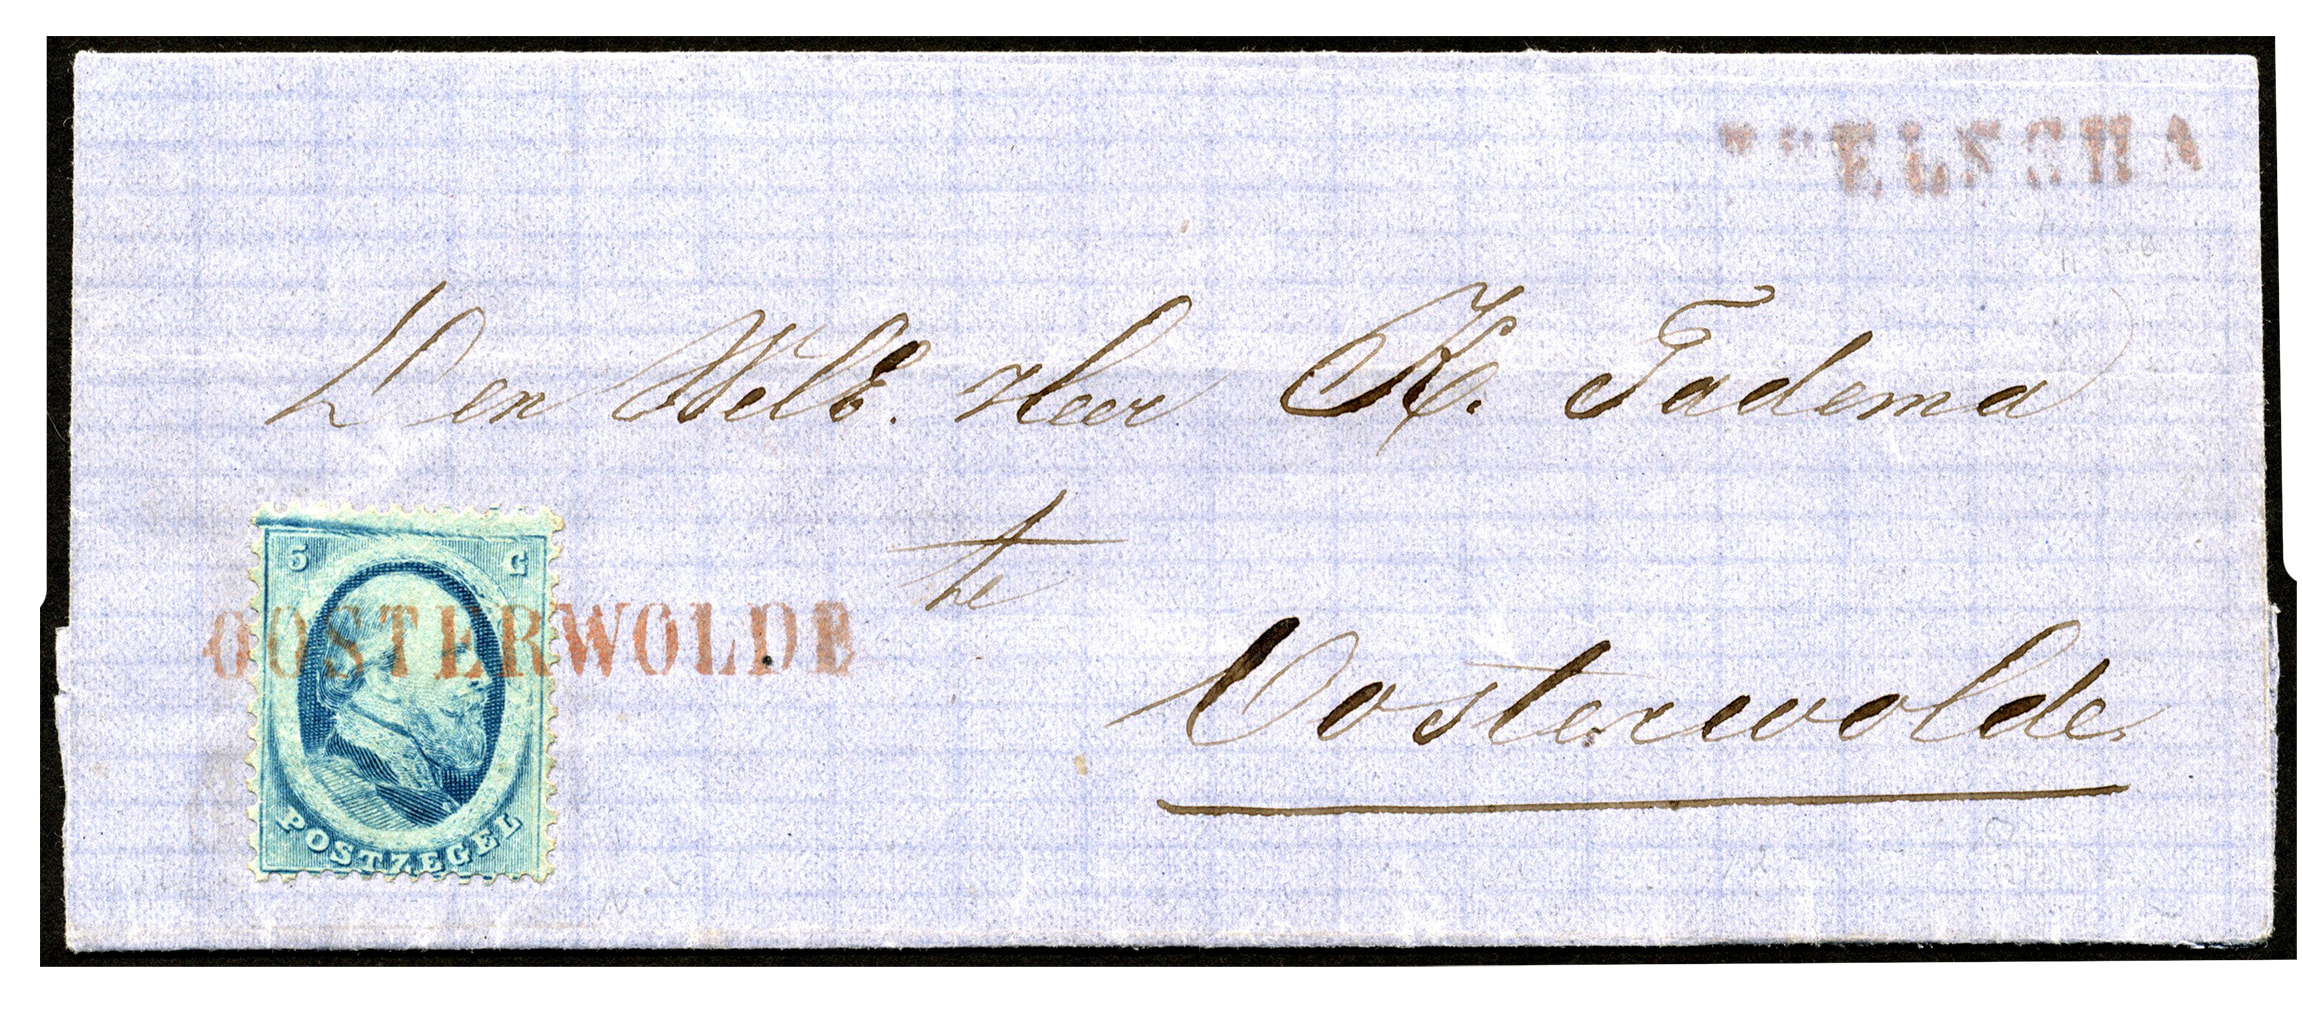 APPELSCHA
Den WelE. Heer K. Tadema
te
Oosterwolde
5 C
OOSTERWOLDE
POSTZEGEL